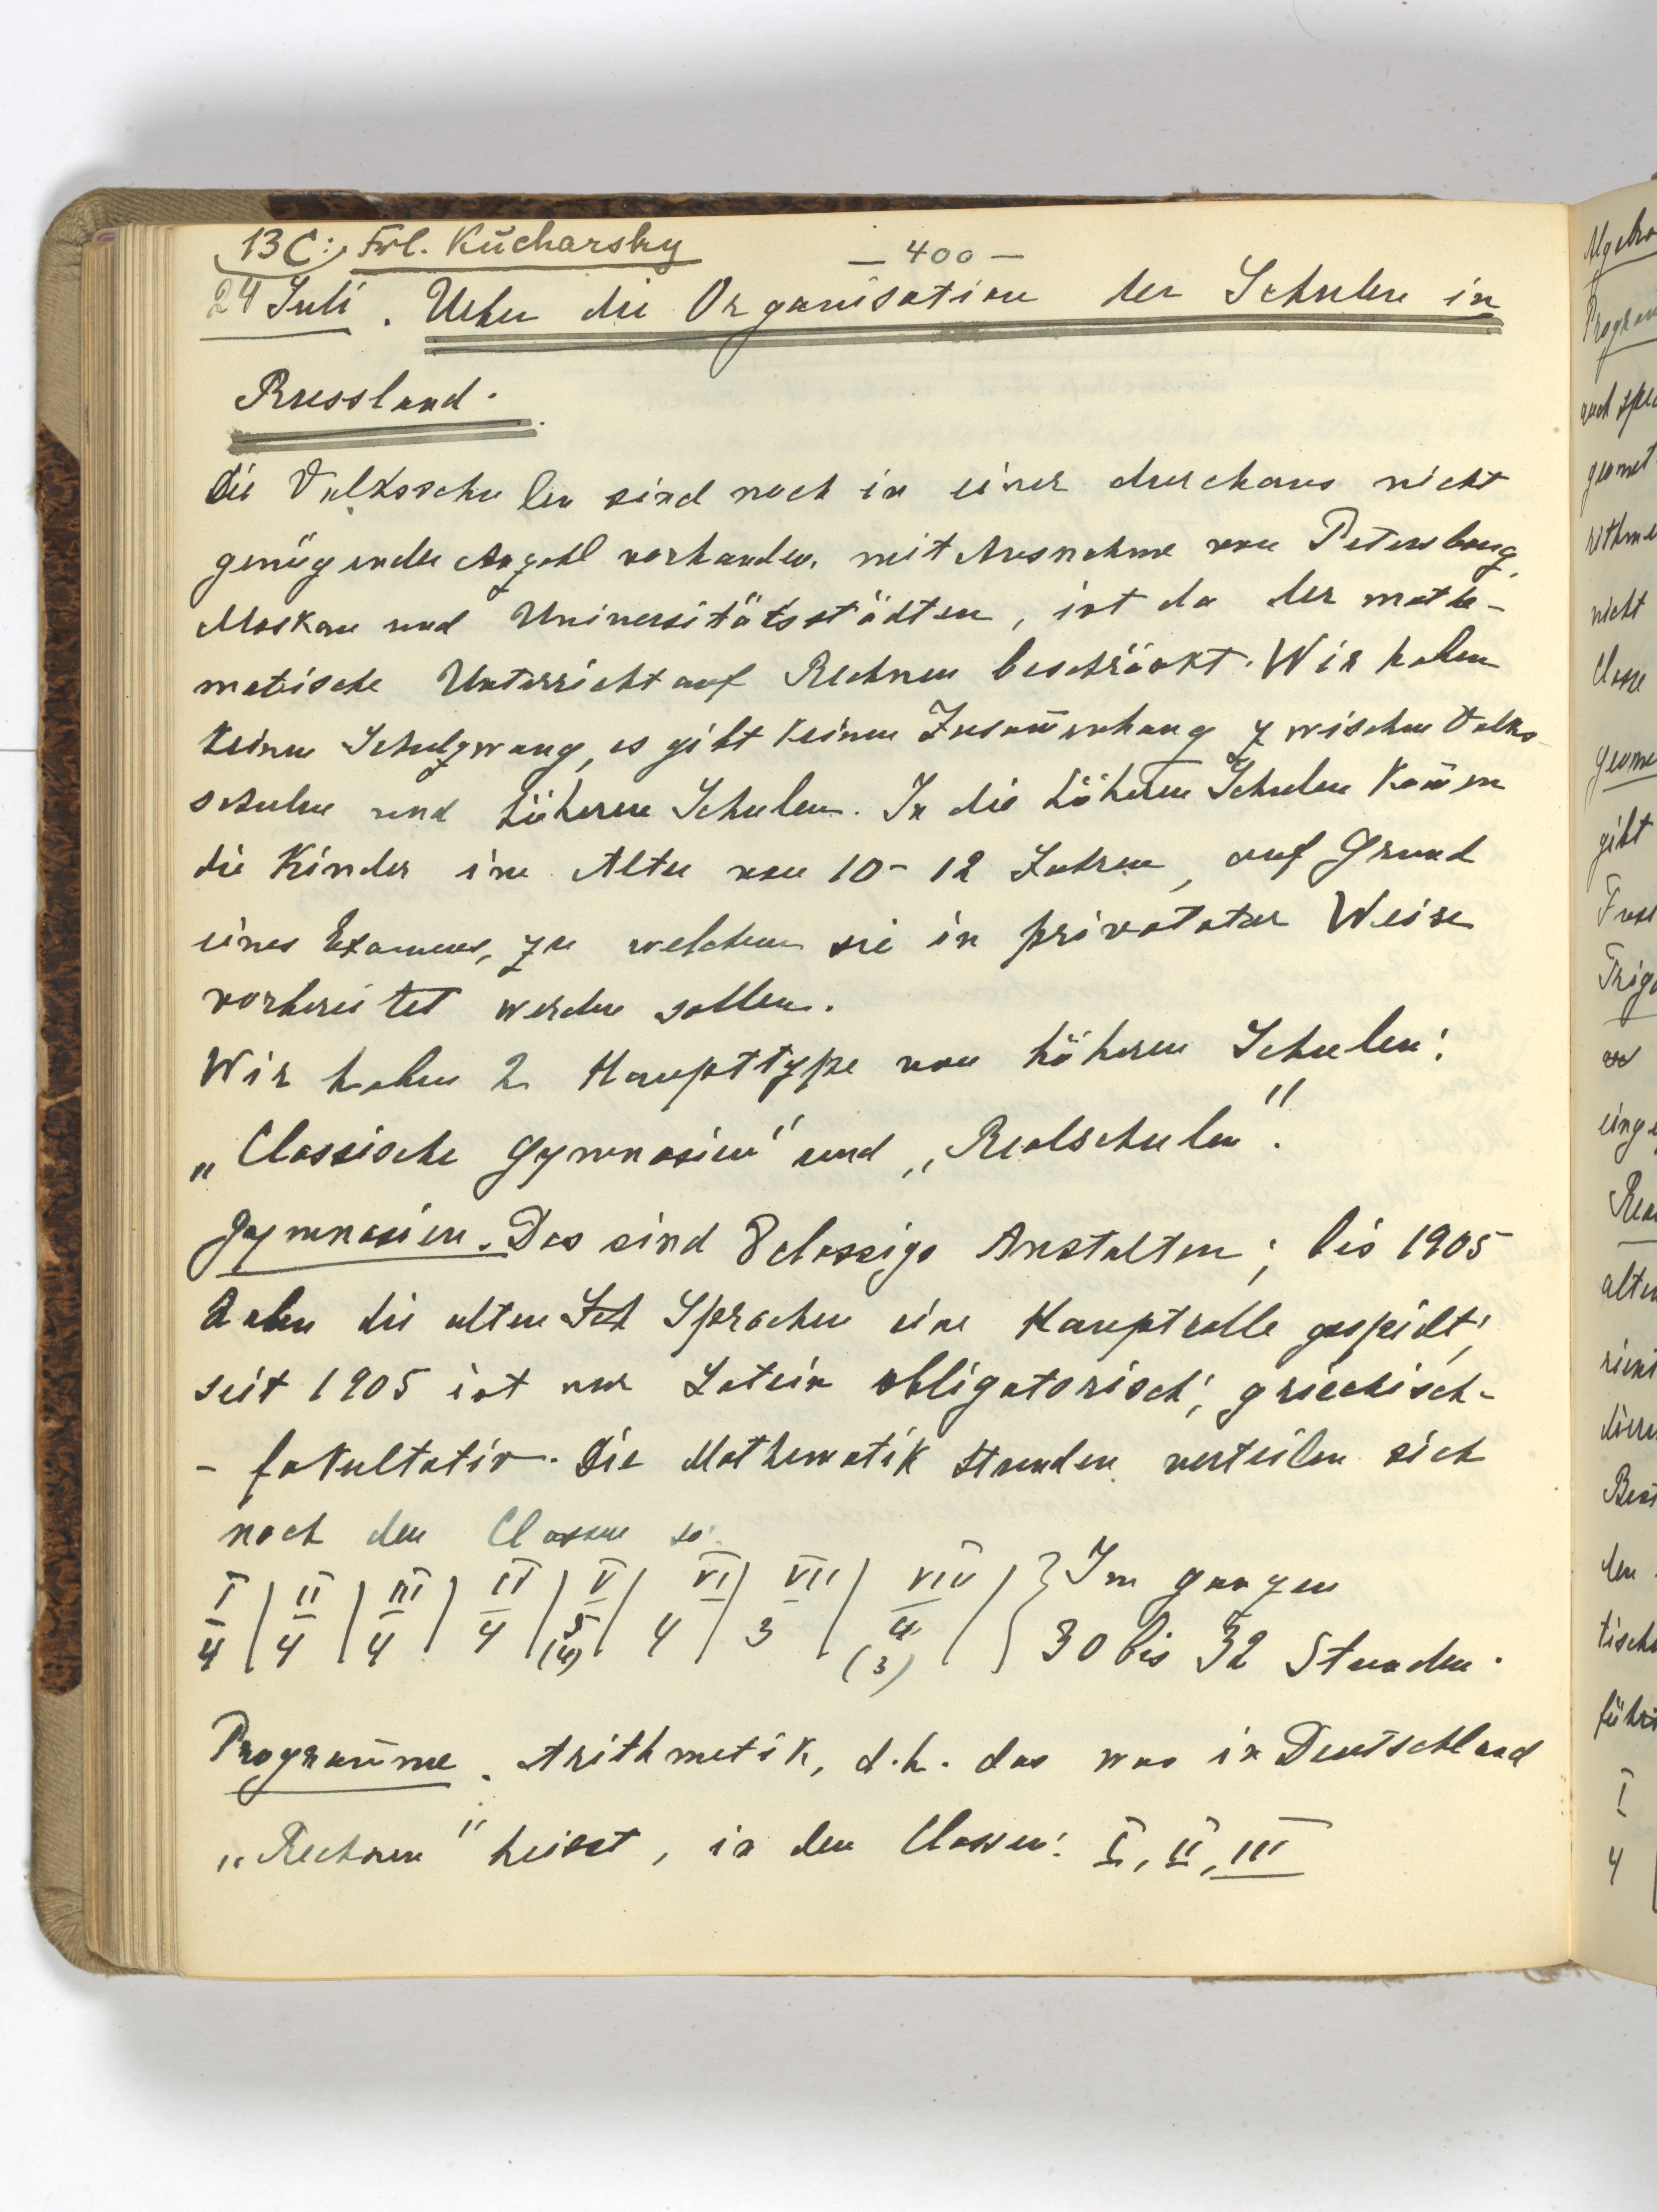 13C: Frl. Kucharsky
— 400 —
24 Juli. Ueber die Organisation der Schulen in
Russland.
Die Volksschulen sind noch in einer durchaus nicht
genügenden Anzahl vorhanden, mit Ausnahme von Petersburg,
Moskau und Universitätsstädten, ist da der mathe-
matische Unterricht auf Rechnen beschränkt. Wir haben
keinen Schulzwang, es gibt keinen Zusam̅enhang zwischen Volks-
schulen und höheren Schulen. In die höheren Schulen kom̅en
die Kinder im Alter von 10-12 Jahren, auf Grund
eines Examens, zu welchem sie in privatater Weise
vorbereitet werden sollen.
Wir haben 2 Haupttype von höheren Schulen:
„Classische Gymnasien" und „Realschulen".
Gymnasien. Das sind 8 classige Anstalten; bis 1905
haben die alten Sch Sprachen eine Hauptrolle gespielt;
seit 1905 ist nur Latein obligatorisch; griechisch-
- fakultativ. Die Mathematik Stunden verteilen sich
nach den Classen so:
I | II | III | IV | V | VI | VII | VIII | } Im ganzen
4 | 4 | 4 | 4 | 5 (4) | 4 | 3 | 4 (3) | } 30 bis 32 Stunden.
Program̅me. Arithmetik, d.h. das was in Deutschland
„Rechnen" heisst, in den Classen: I, II, III
Algebra
Program
auch
geomet
rithme
nicht
Classe
geome
gibt
Trigo
einge
Rea
alten
den
tische
führ
I
4